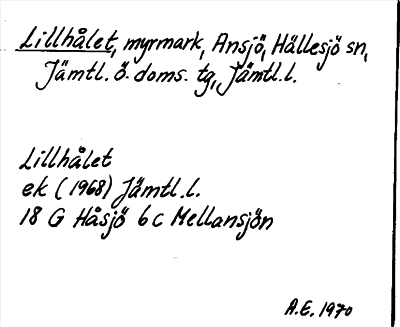 Lillhålet, myrmark, Ansjö, Hällesjö sn,
Jämtl. ö. doms. tg, Jämtl. l.
Lillhålet
ek (1968) Jämtl. l.
18 G Håsjö 6 c Mellansjön
A.E. 1970